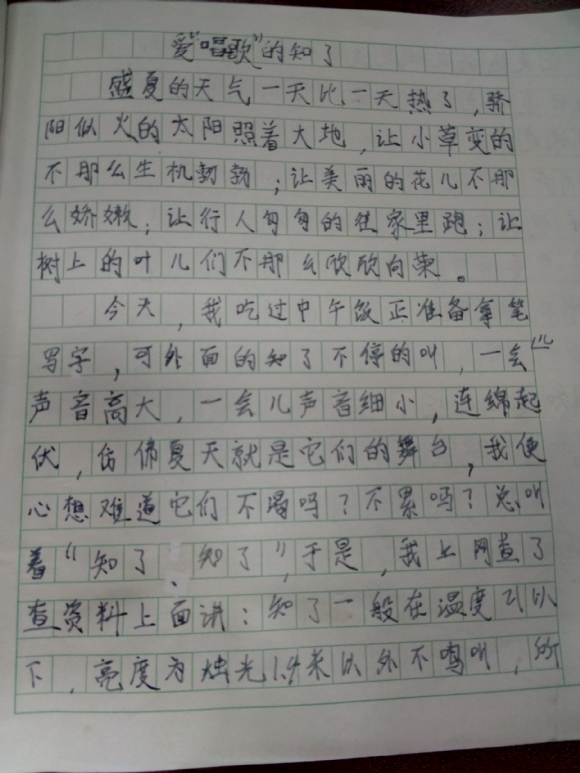 爱“唱歌”的知了
盛夏的天气一天比一天热了，骄
阳似火的太阳照着大地，让小草变的
不那么生机勃勃；让美丽的花儿不那
么娇嫩；让行人匆匆的往家里跑；让
树上的叶儿们不那么欣欣向荣。
今天，我吃过中午饭正准备拿笔
写字，可外面的知了不停的叫，一会儿
声音高大，一会儿声音细小，连绵起
伏，仿佛夏天就是它们的舞台，我便
心想难道它们不渴吗？不累吗？总叫
着“知了、知了”，于是，我上网查了
查资料上面讲：知了一般在温度21以
下，亮度为烛光1.4米以外不鸣叫，所